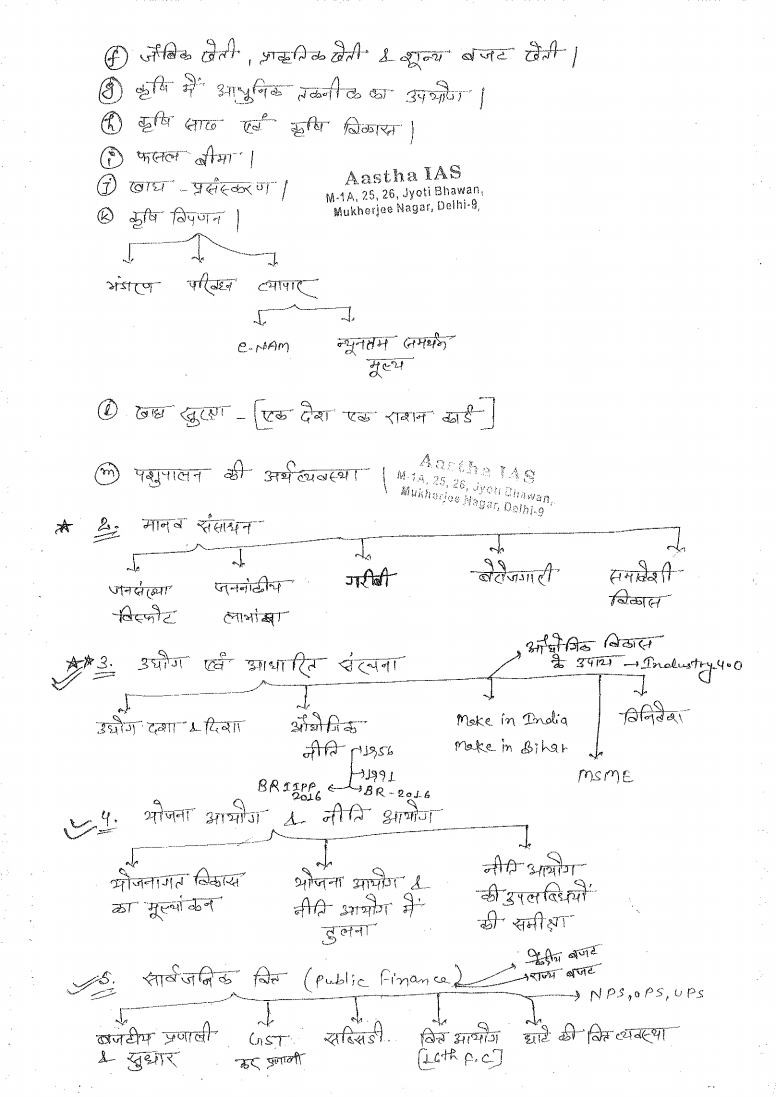 (f) जैविक खेती, प्राकृतिक खेती & शून्य बजट खेती |
(g) कृषि में आधुनिक तकनीक का उपयोग |
(h) कृषि साख एवं कृषि विकास |
(i) फसल बीमा |
(j) खाद्य - प्रसंस्करण |
Aastha IAS
M-1A, 25, 26, Jyoti Bhawan,
Mukherjee Nagar, Delhi-9,
(k) कृषि विपणन |
भंडारण परिवहन व्यापार
e-NAM न्यूनतम समर्थन
मूल्य
(l) खाद्य सुरक्षा - [एक देश एक राशन कार्ड]
(m) पशुपालन की अर्थव्यवस्था |
Aastha IAS
M-1A, 25, 26, Jyoti Bhawan,
Mukherjee Nagar, Delhi-9
★ 2. मानव संसाधन
जनसंख्या जननांकीय गरीबी बेरोजगारी समावेशी
विस्फोट लाभांश विकास
औद्योगिक विकास
के उपाय → Industry 4.0
★★ 3. उद्योग एवं आधारित संरचना
उद्योग दशा & दिशा औद्योगिक Make in India विनिवेश
नीति → 1956 Make in Bihar
→ 1991 MSME
BRIIPP ← → BR-2016
2016
4. योजना आयोग & नीति आयोग
योजनागत विकास योजना आयोग & नीति आयोग
का मूल्यांकन नीति आयोग में की उपलब्धियों
तुलना की समीक्षा
केंद्रीय बजट
5. सार्वजनिक वित्त (Public Finance) → राज्य बजट
→ NPS, OPS, UPS
बजटीय प्रणाली GST सब्सिडी वित्त आयोग घाटे की वित्त व्यवस्था
& सुधार कर प्रणाली [16th F.C]